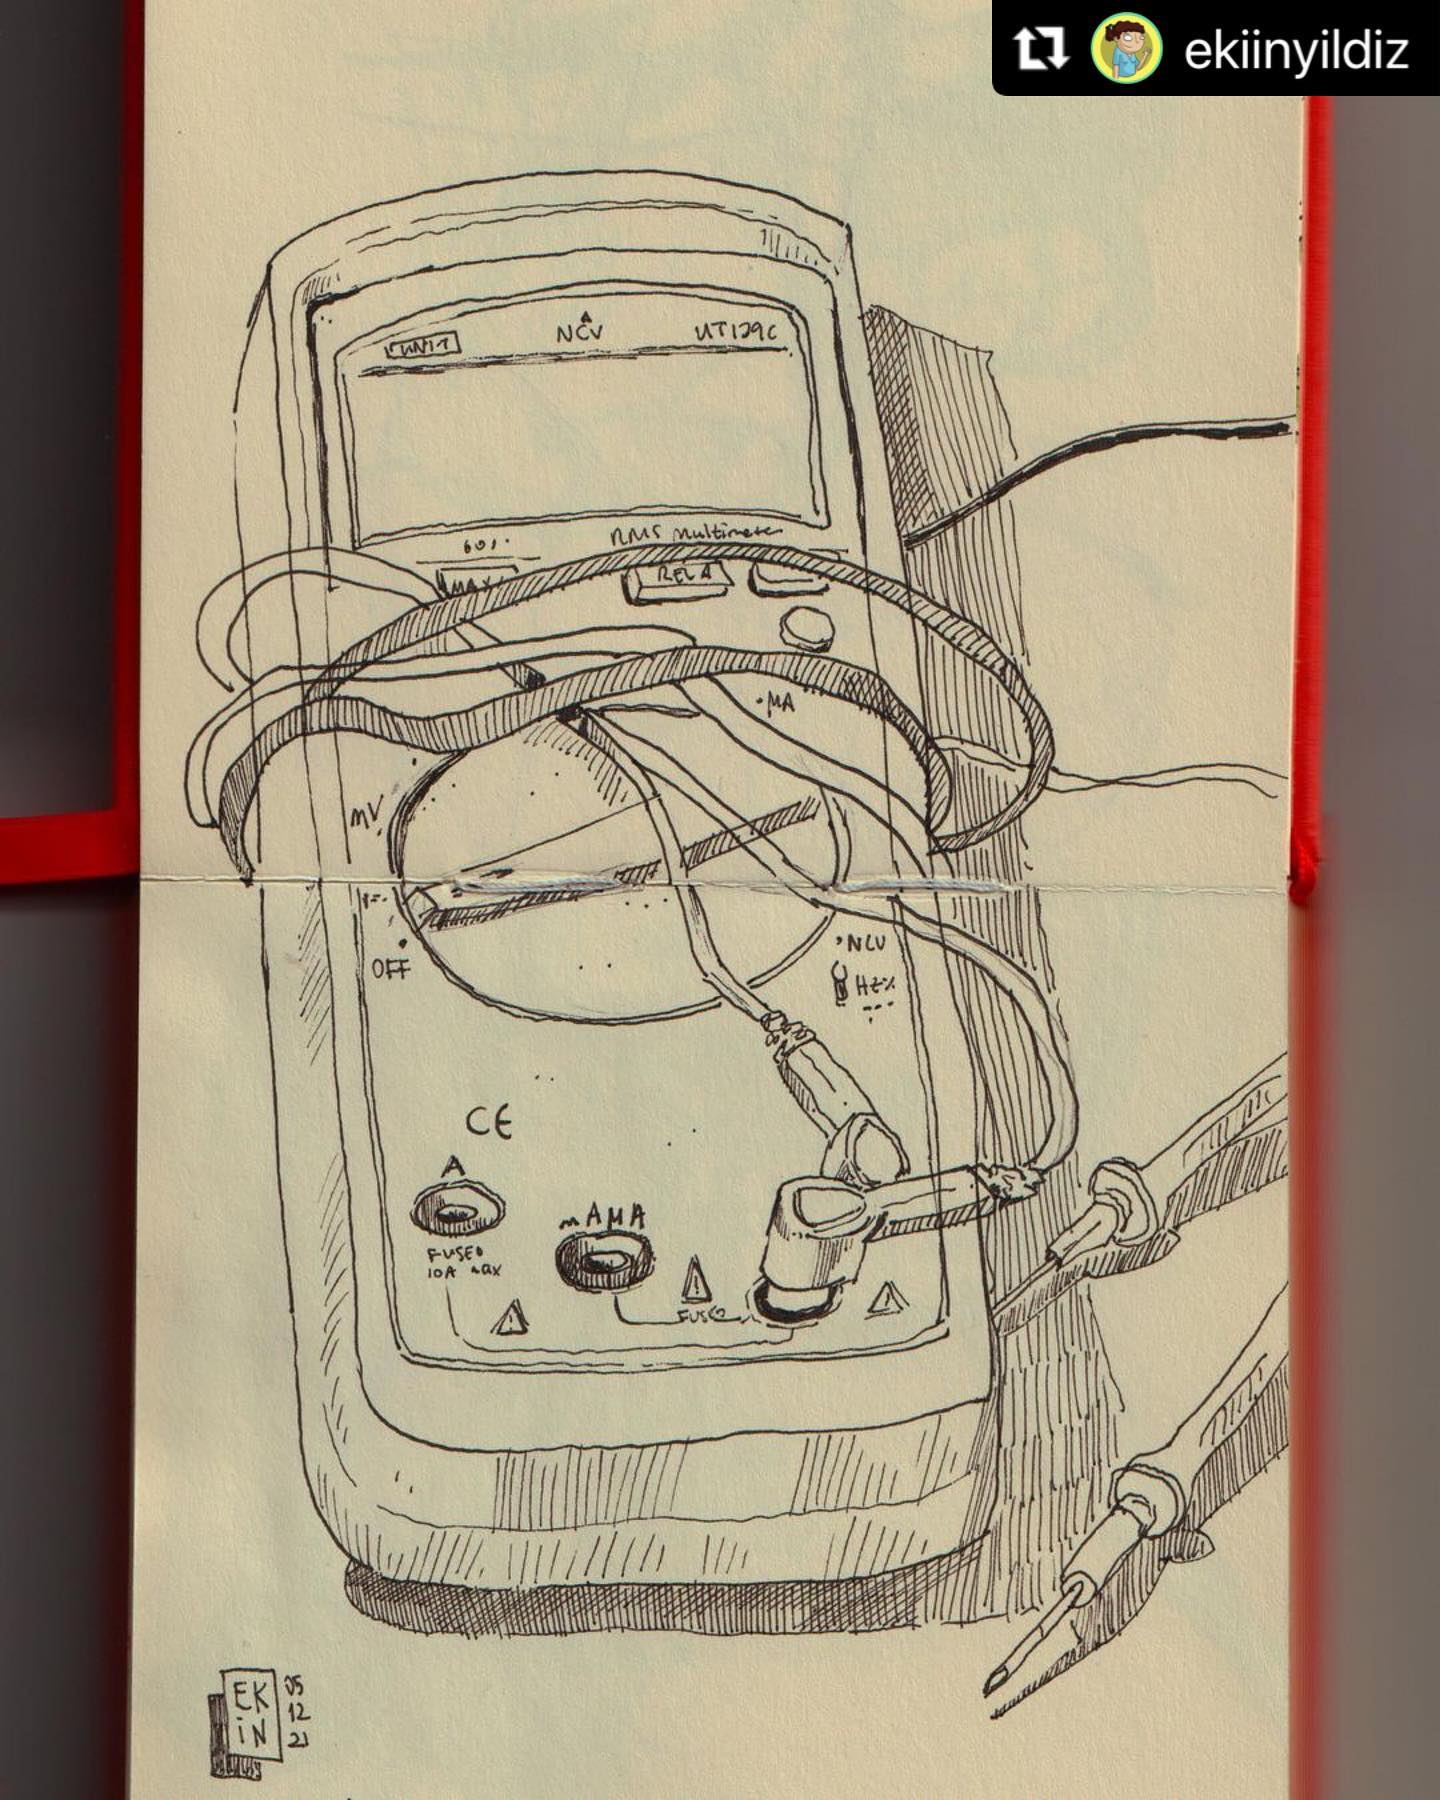 ekiinyildiz
UNI-T
NCV
UT129C
60%
RMS Multimeter
MAX
REL Δ
MA
mV
OFF
NCV
Hz%
CE
A
mAMA
FUSED
10A max
FUSED
EK
iN
05
12
21